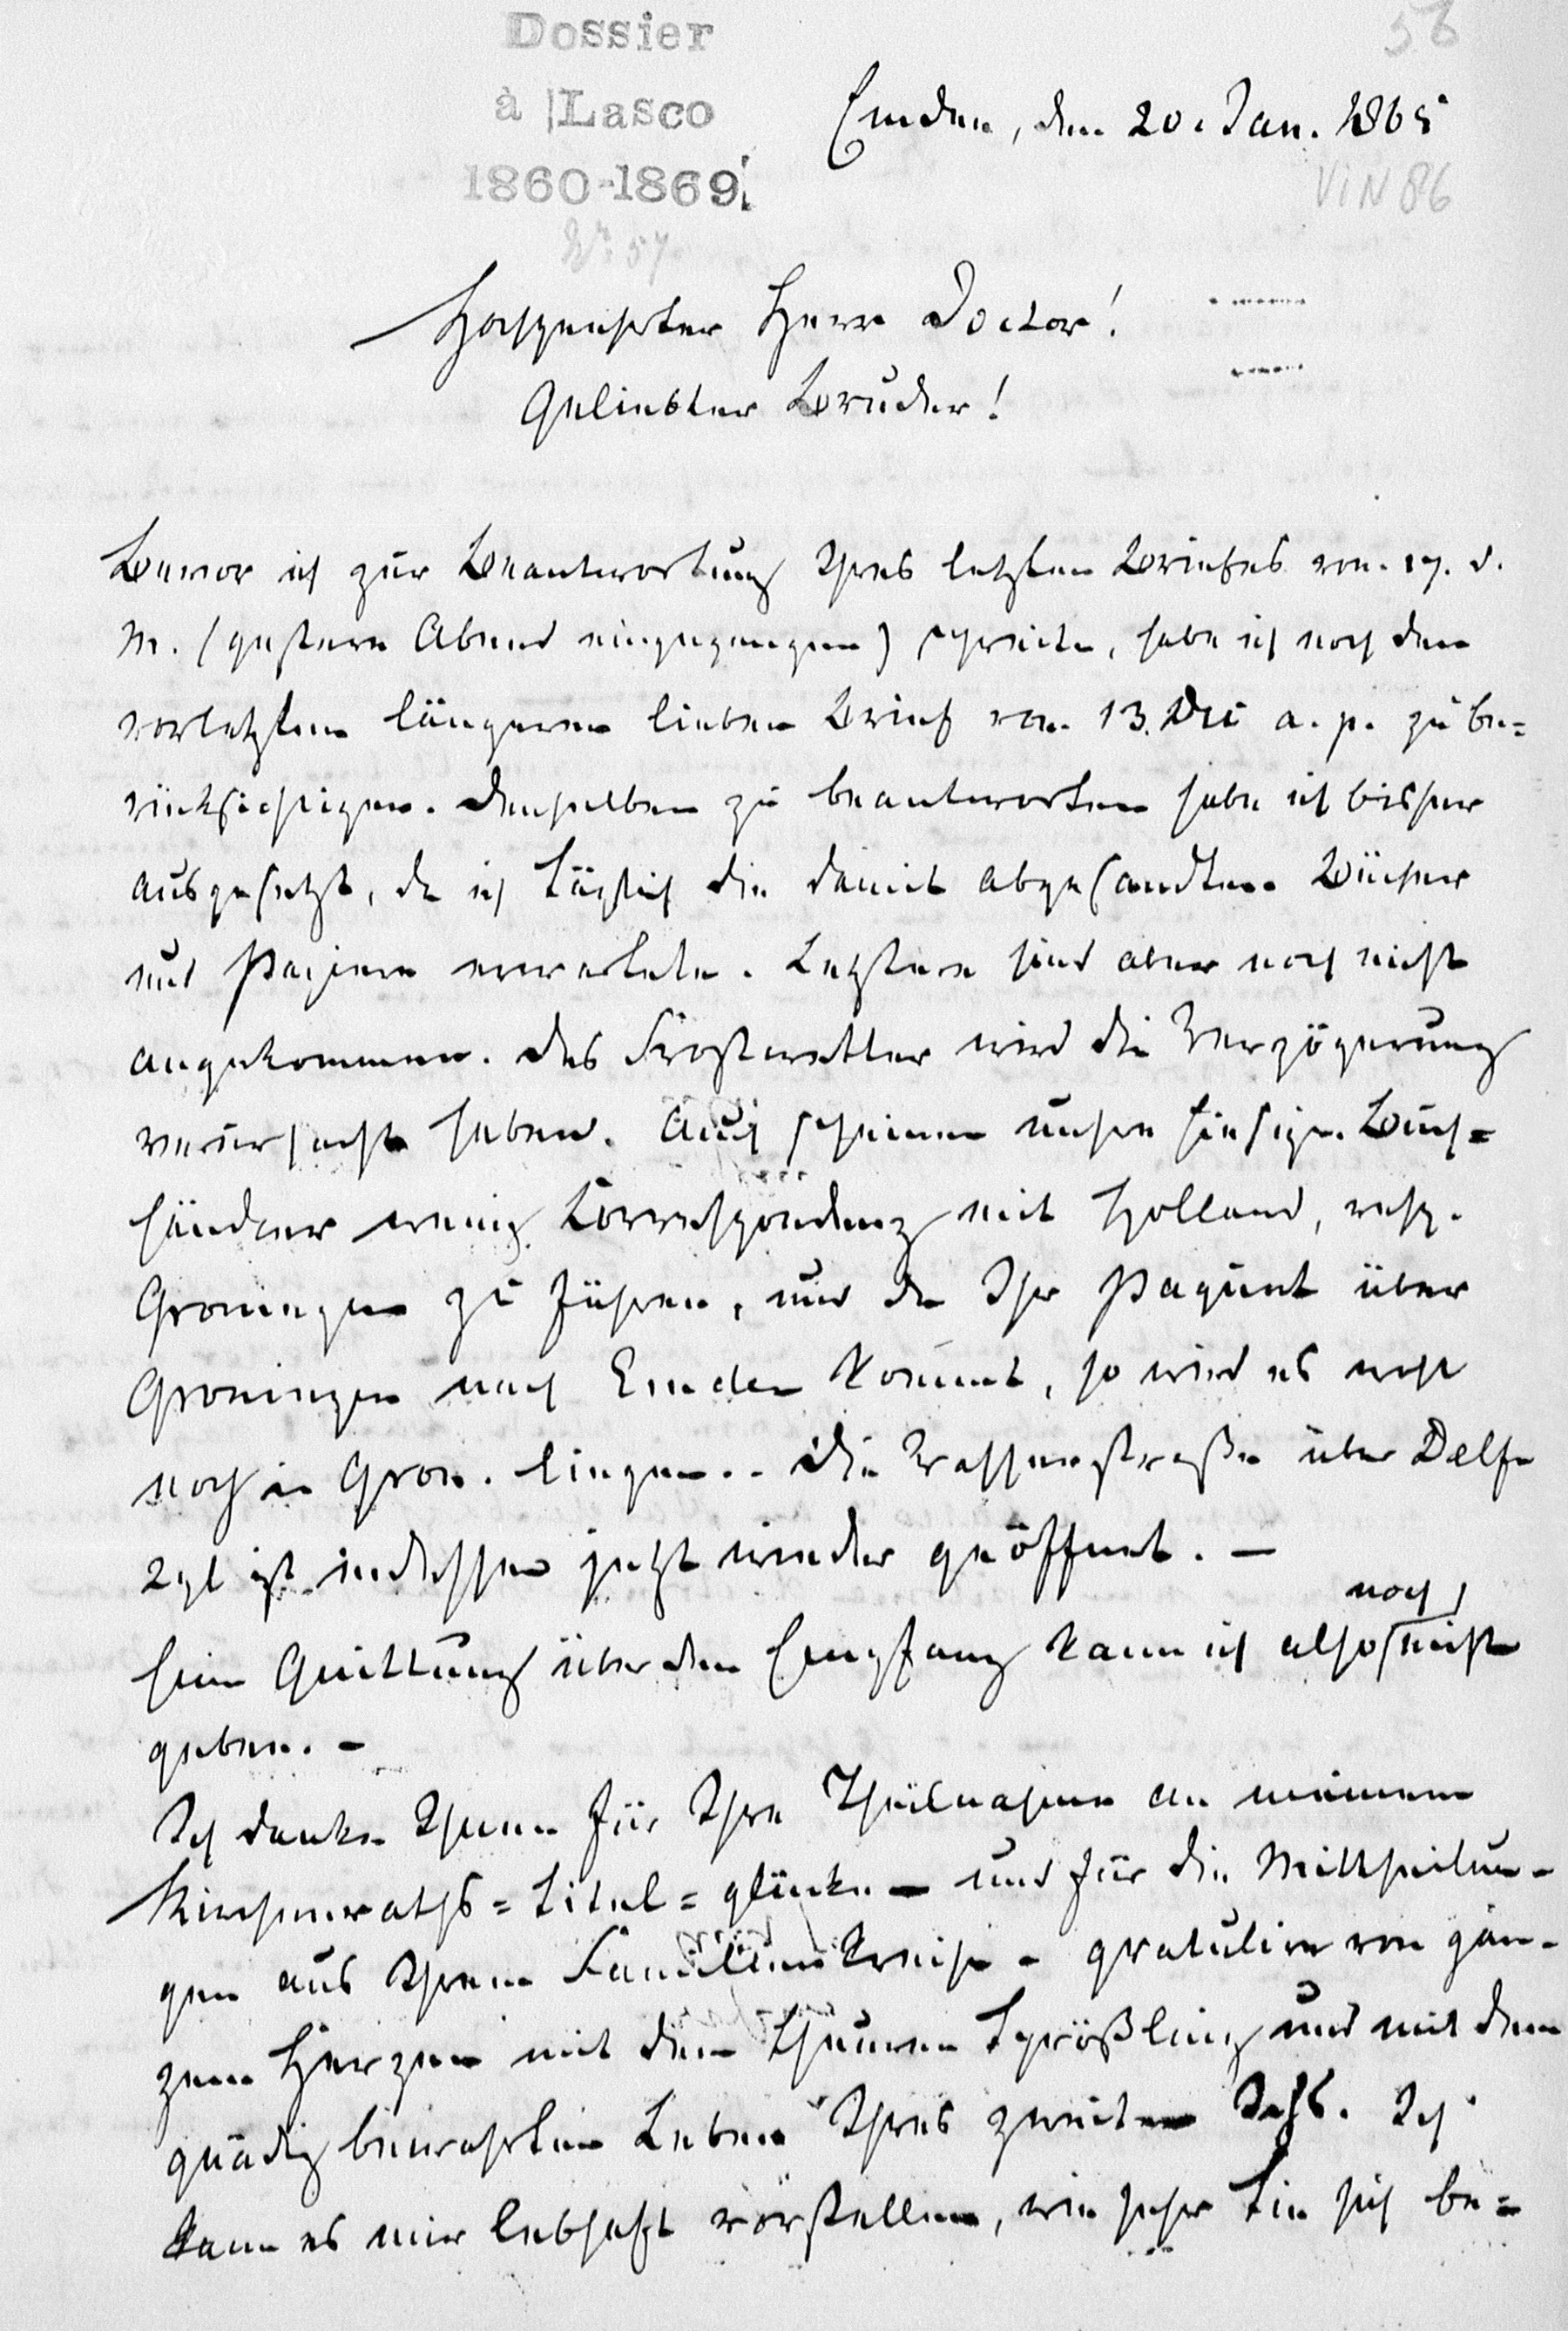 Dossier
à Lasco
1860-1869
No 57
56
Emden, den 20. Jan. 1865
VIN 86
Hochgeehrter Herr Doctor!
Geliebter Bruder!
Bevor ich zur Beantwortung Ihres letzten Briefes vom 17. d.
M. (gestern Abend eingegangen) schreite, habe ich noch den
vorletzten längeren lieben Brief vom 13. Dec a. p. zu be=
rücksichtigen. Denselben zu beantworten habe ich bisher
ausgesetzt, da ich täglich die damit abgesandten Bücher
und Papiere erwartete. Letztere sind aber noch nicht
angekommen. Das Frostwetter wird die Verzögerung
verursacht haben. Auch scheinen unsre hiesigen Buch=
händler wenig Correspondenz mit Holland, resp.
Groningen zu führen, und da Ihr Paquet über
Groningen nach Emden kommt, so wird es wohl
noch in Gron. liegen. - Die Wasserstraße über Delf
zyl ist indessen jetzt wieder geöffnet. -
noch
Eine Quittung über den Empfang kann ich also nicht
geben. -
Ich danke Ihnen für Ihre Theilnahme an meinem
Kirchenraths=titel=glücke - und für die Mittheilun-
gen aus Ihrem Familienkreise - gratulire von gan-
zem Herzen mit dem theuren Sprößling und mit dem
gnädig bewahrten Leben Ihres zweiten Ichs. Ich
kann es mir lebhaft vorstellen, wie sehr Sie sich be=